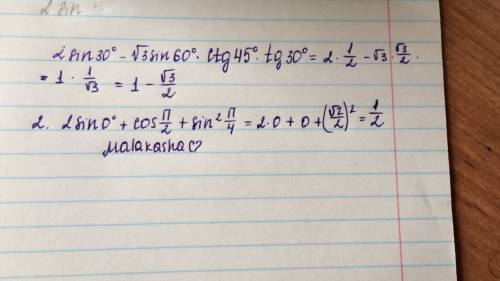 2 sin
2sin30° - √3sin60° · ctg45° · tg30° = 2 · 1/2 - √3 · √3/2 ·
= 1 · 1/√3 = 1 - √3/2
2. 2sin0° + cos π/2 + sin² π/4 = 2·0 + 0 + (√2/2)² = 1/2